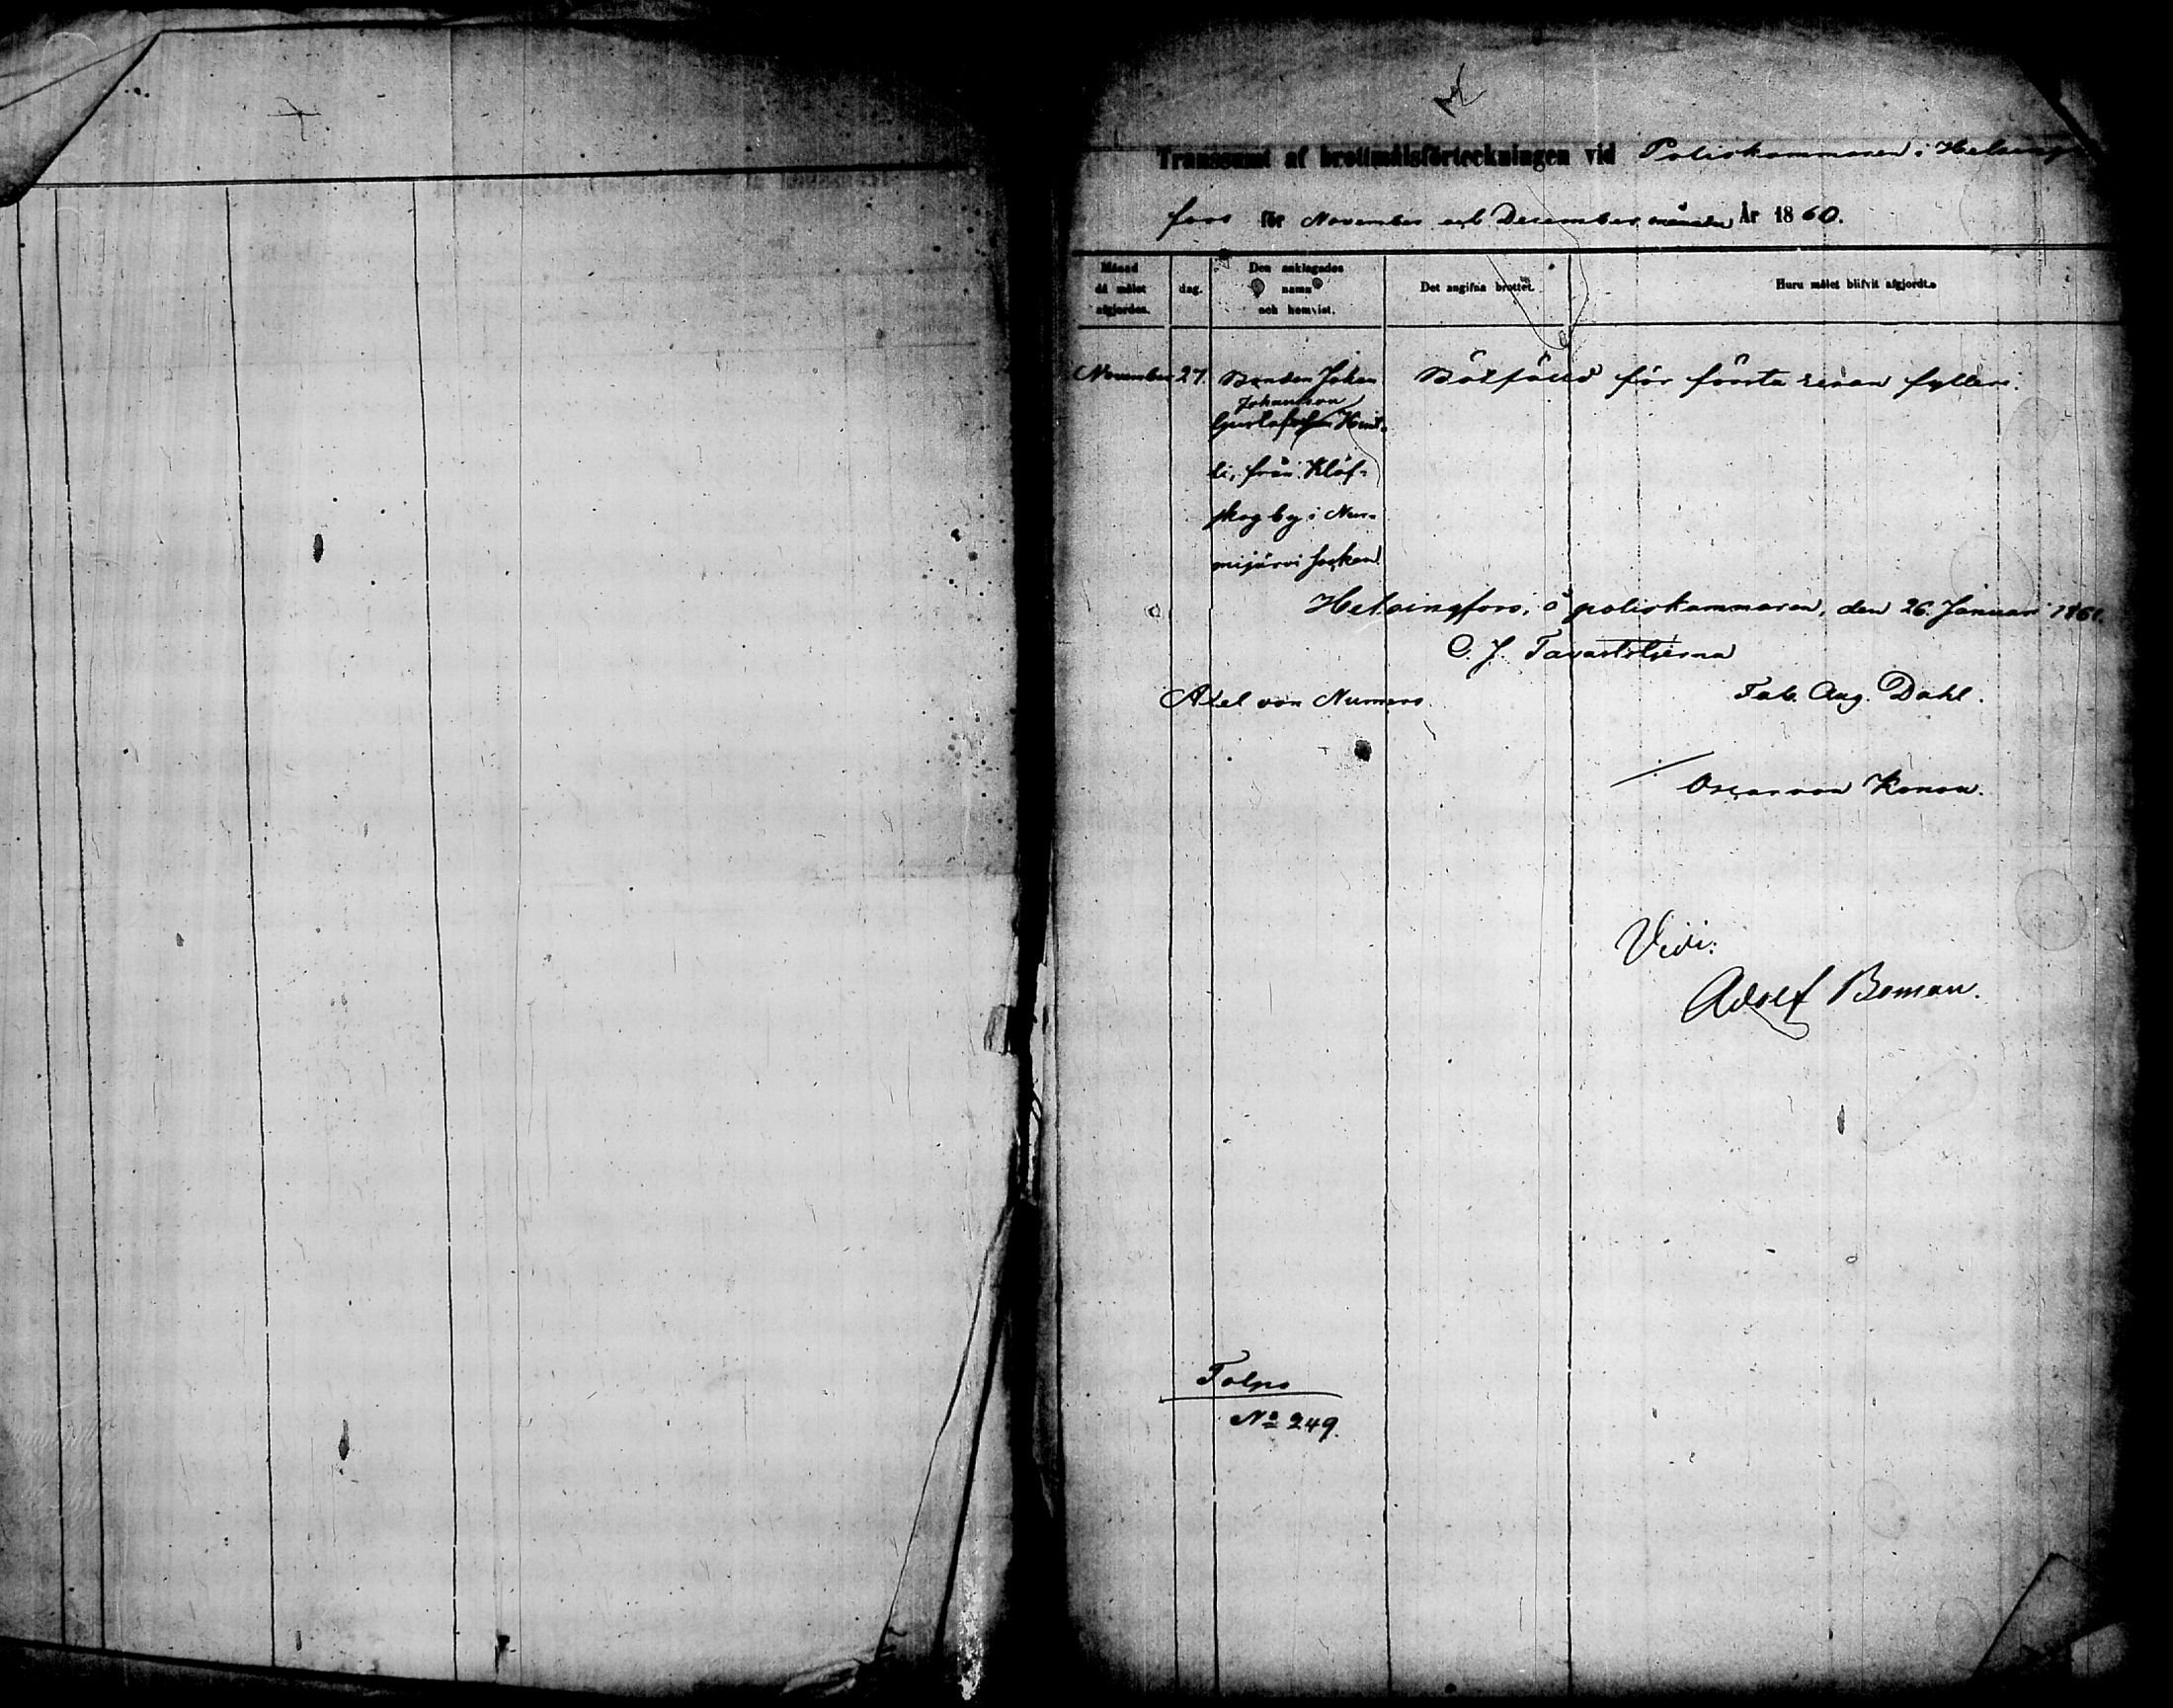 Transsumt af brottmålsförteckningen vid Poliskammaren i Helsing
fors för November och December månader År 1860.
Månad
då målet
afgjordes.
dag.
Den anklagades
namn
och hemvist.
Det angifna brottet.
Huru målet blifvit afgjordt.
November 27. Bonden Johan Bötfälld för första resan fylleri.
Johansson
Gustafsson Hint-
li, från Klöf-
skog by i Nur-
mijärvi socken
Helsingfors, å poliskammaren, den 26. Januari 1861.
C. J. Tavaststjerna
Axel von Numers Fab. Aug. Dahl.
Oscar von Konow.
Vidi:
Adolf Boman.
Tolpo
No 249.